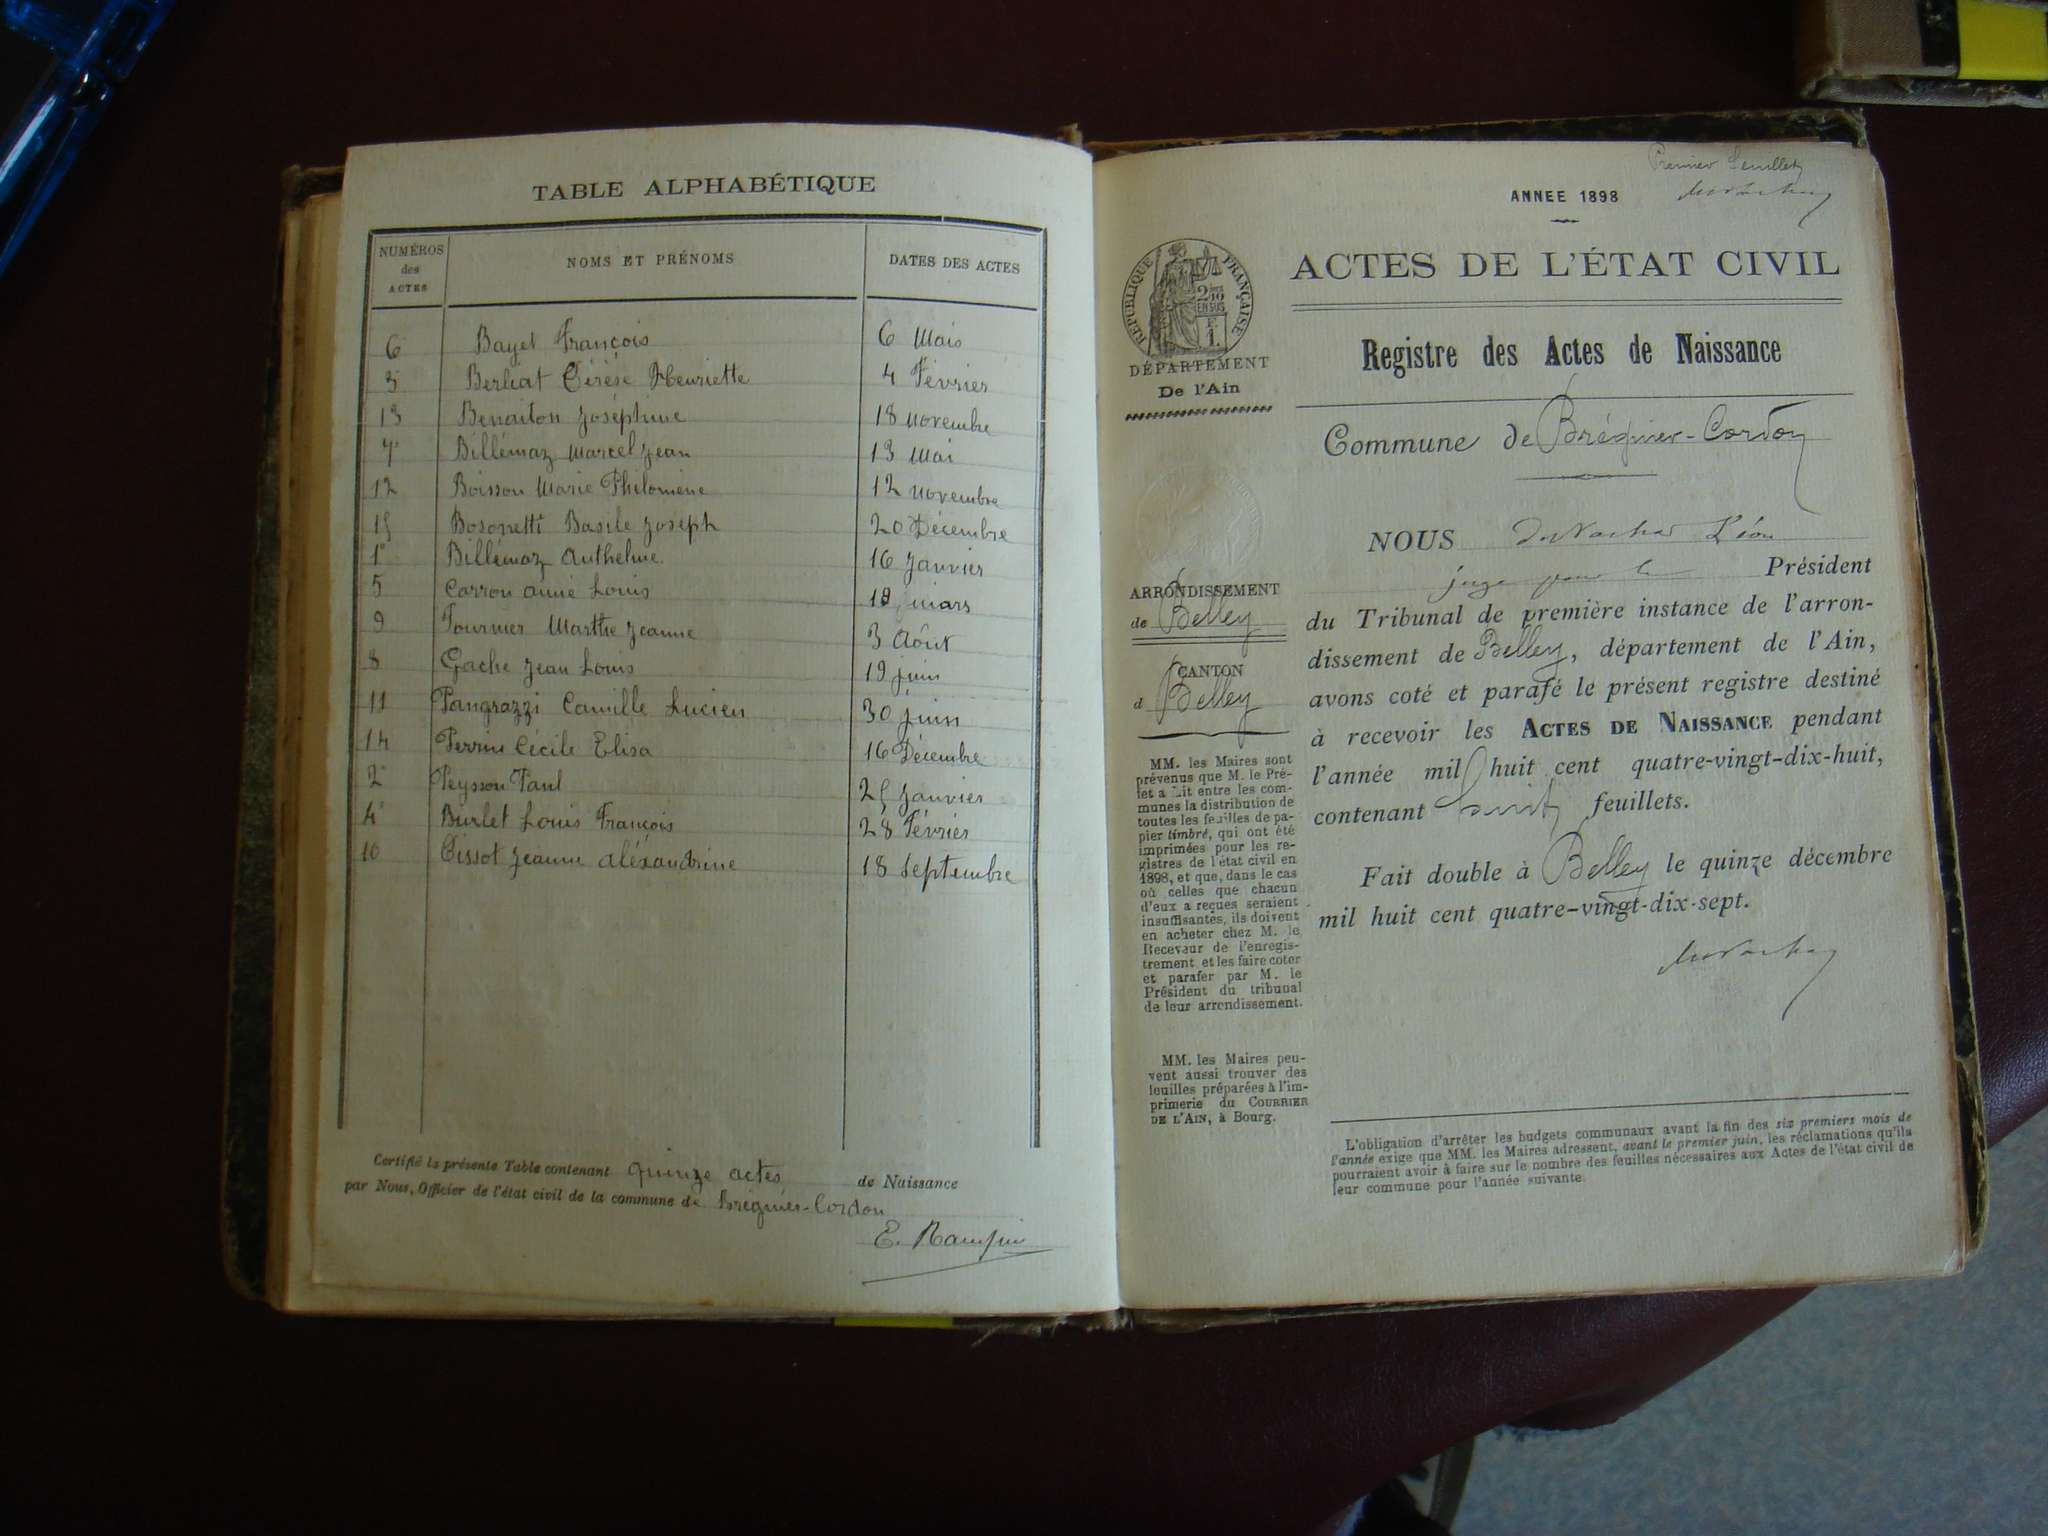 TABLE ALPHABÉTIQUE
NUMÉROS des ACTES NOMS ET PRÉNOMS DATES DES ACTES
6 Bayet François 6 Mais
3 Berliat Térése Henriette 4 Février
13 Benaiton Joséphine 18 novembre
7 Billémaz Marcel Jean 13 Mai
12 Boisson Marie Philomène 12 novembre
15 Bosonetti Basile Joseph 20 Décembre
1 Billémaz Anthelme 16 Janvier
5 Carron aimé Louis 18 mars
9 Fournier Marthe Jeanne 3 Aôut
8 Gache Jean Louis 19 juin
11 Pangrazzi Camille Lucien 30 juin
14 Perrin Cécile Elisa 16 Décembre
2 Peysson Paul 25 Janvier
4 Burlet Louis François 28 Février
10 Tissot Jeanne aléxandrine 18 Septembre
Certifié la présente Table contenant quinze actes de Naissance
par Nous, Officier de l'état civil de la commune de Brégnier-Cordon
Premier feuillet
ANNEE 1898
RÉPUBLIQUE FRANÇAISE
2/10 EN SUS
ACTES DE L'ÉTAT CIVIL
DÉPARTEMENT
De l'Ain
Registre des Actes de Naissance
Commune de Brégnier-Cordon
ARRONDISSEMENT
de Belley
CANTON
d Belley
MM. les Maires sont
prévenus que M. le Pré-
fet a fait entre les com-
munes la distribution de
toutes les feuilles de pa-
pier timbré, qui ont été
imprimées pour les re-
gistres de l'état civil en
1898, et que, dans le cas
où celles que chacun
d'eux a reçues seraient
insuffisantes, ils doivent
en acheter chez M. le
Receveur de l'enregis-
trement et les faire coter
et parafer par M. le
Président du tribunal
de leur arrondissement.
MM. les Maires peu-
vent aussi trouver des
feuilles préparées à l'im-
primerie du COURRIER
DE L'AIN, à Bourg.
NOUS Léon
juge pour le Président
du Tribunal de première instance de l'arron-
dissement de Belley, département de l'Ain,
avons coté et parafé le présent registre destiné
à recevoir les ACTES DE NAISSANCE pendant
l'année mil huit cent quatre-vingt-dix-huit,
contenant huit feuillets.
Fait double à Belley le quinze décembre
mil huit cent quatre-vingt-dix-sept.
L'obligation d'arrêter les budgets communaux avant la fin des six premiers mois de
l'année exige que MM. les Maires adressent, avant le premier juin, les réclamations qu'ils
pourraient avoir à faire sur le nombre des feuilles nécessaires aux Actes de l'état civil de
leur commune pour l'année suivante.